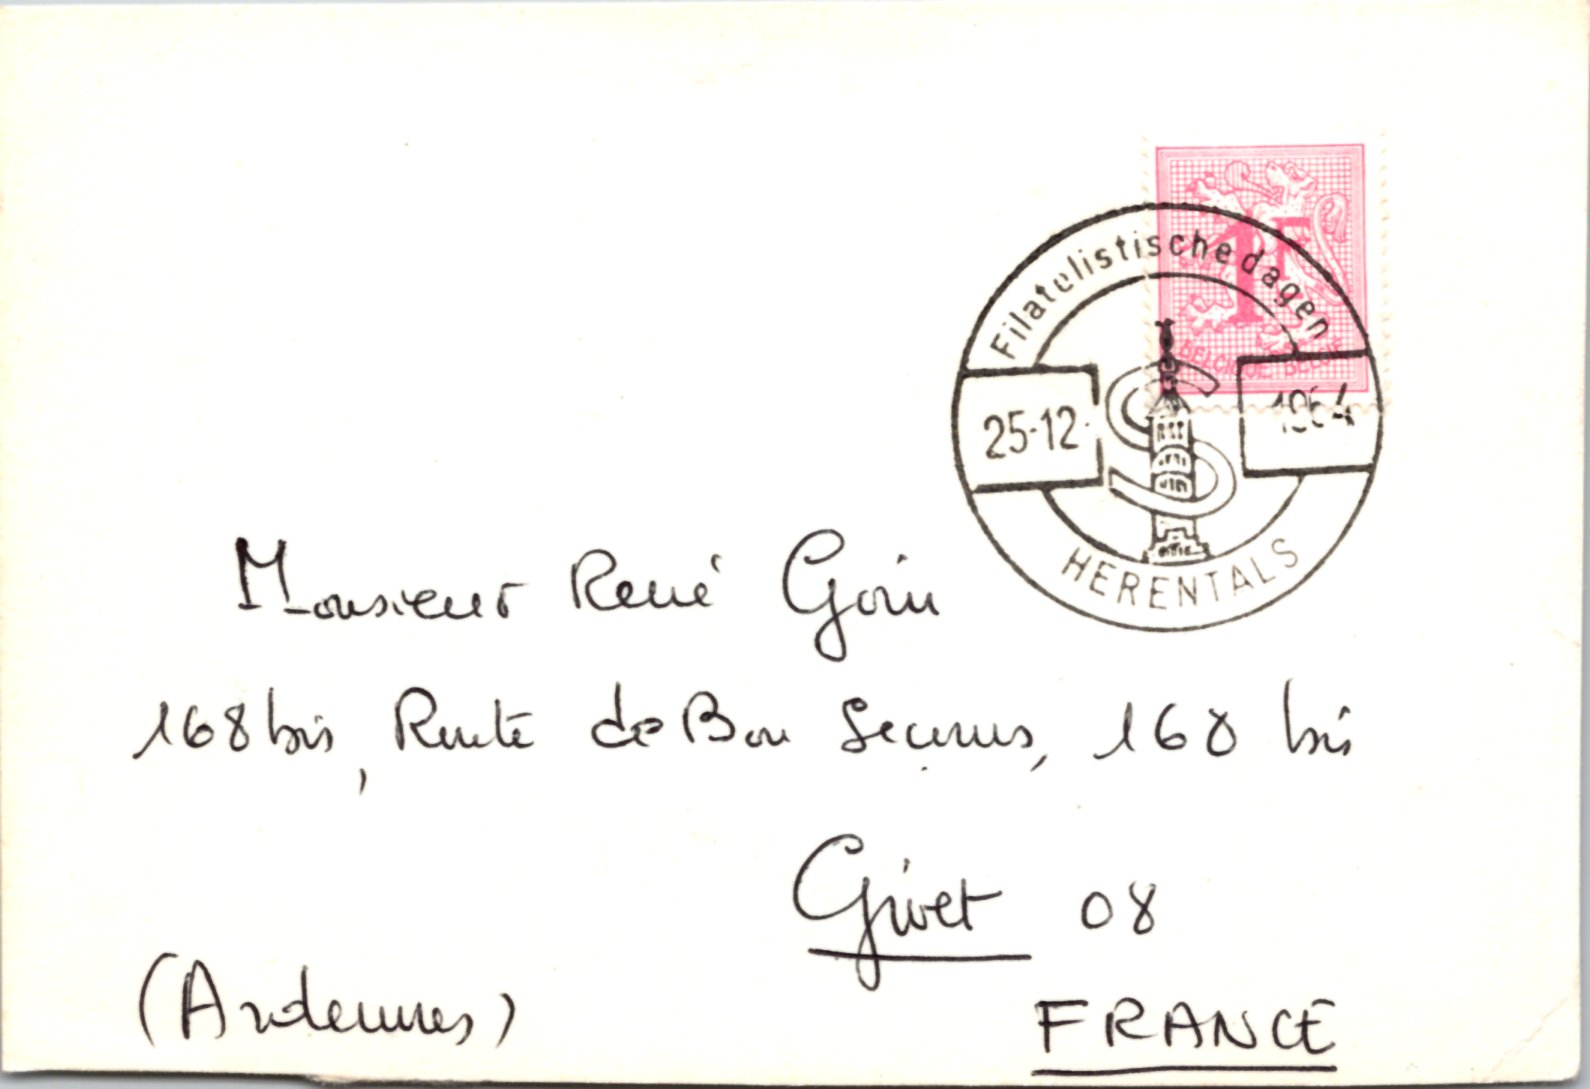 1F
BELGIQUE BELGIË
Filatelistische dagen
25-12-
1964
HERENTALS
Monsieur René Gorin
168 bis, Route de Bon Secours, 168 bis
Givet 08
(Ardennes)
FRANCE